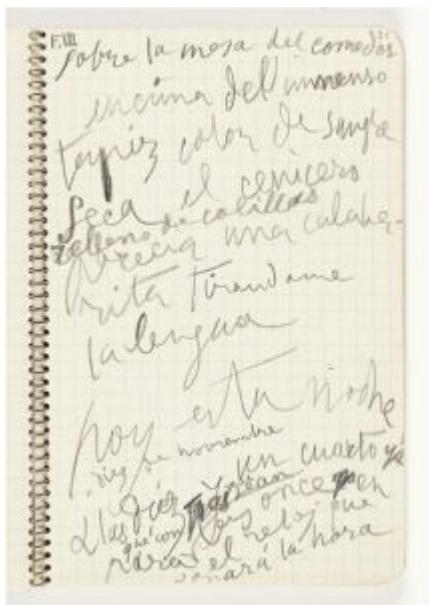 F.III
sobre la mesa del comedor
encima del inmenso
tapiz color de sangre
seca el cenicero
relleno de colillas
parecia una calabe-
rita tirandome
la lengua
hoy esta noche
diez de noviembre
a las diez y un cuarto ya
que con
las once en
el reloj que
sonará la hora